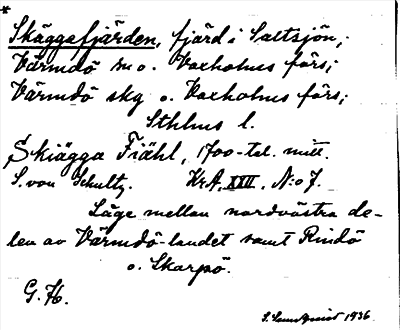 *
Skäggafjärden, fjärd i Saltsjön,;
Värmdö sn o. Vaxholms förs;
Värmdö skg o. Vaxholms förs;
Sthlms l.
Skiägga Fiähl, 1700-tal. mitt.
S. von Schultz. KrA, XXII, N:o 7.
Läge mellan nordvästra de-
len av Värmdö-landet samt Rindö
o. Skarpö.
G. H.
1936